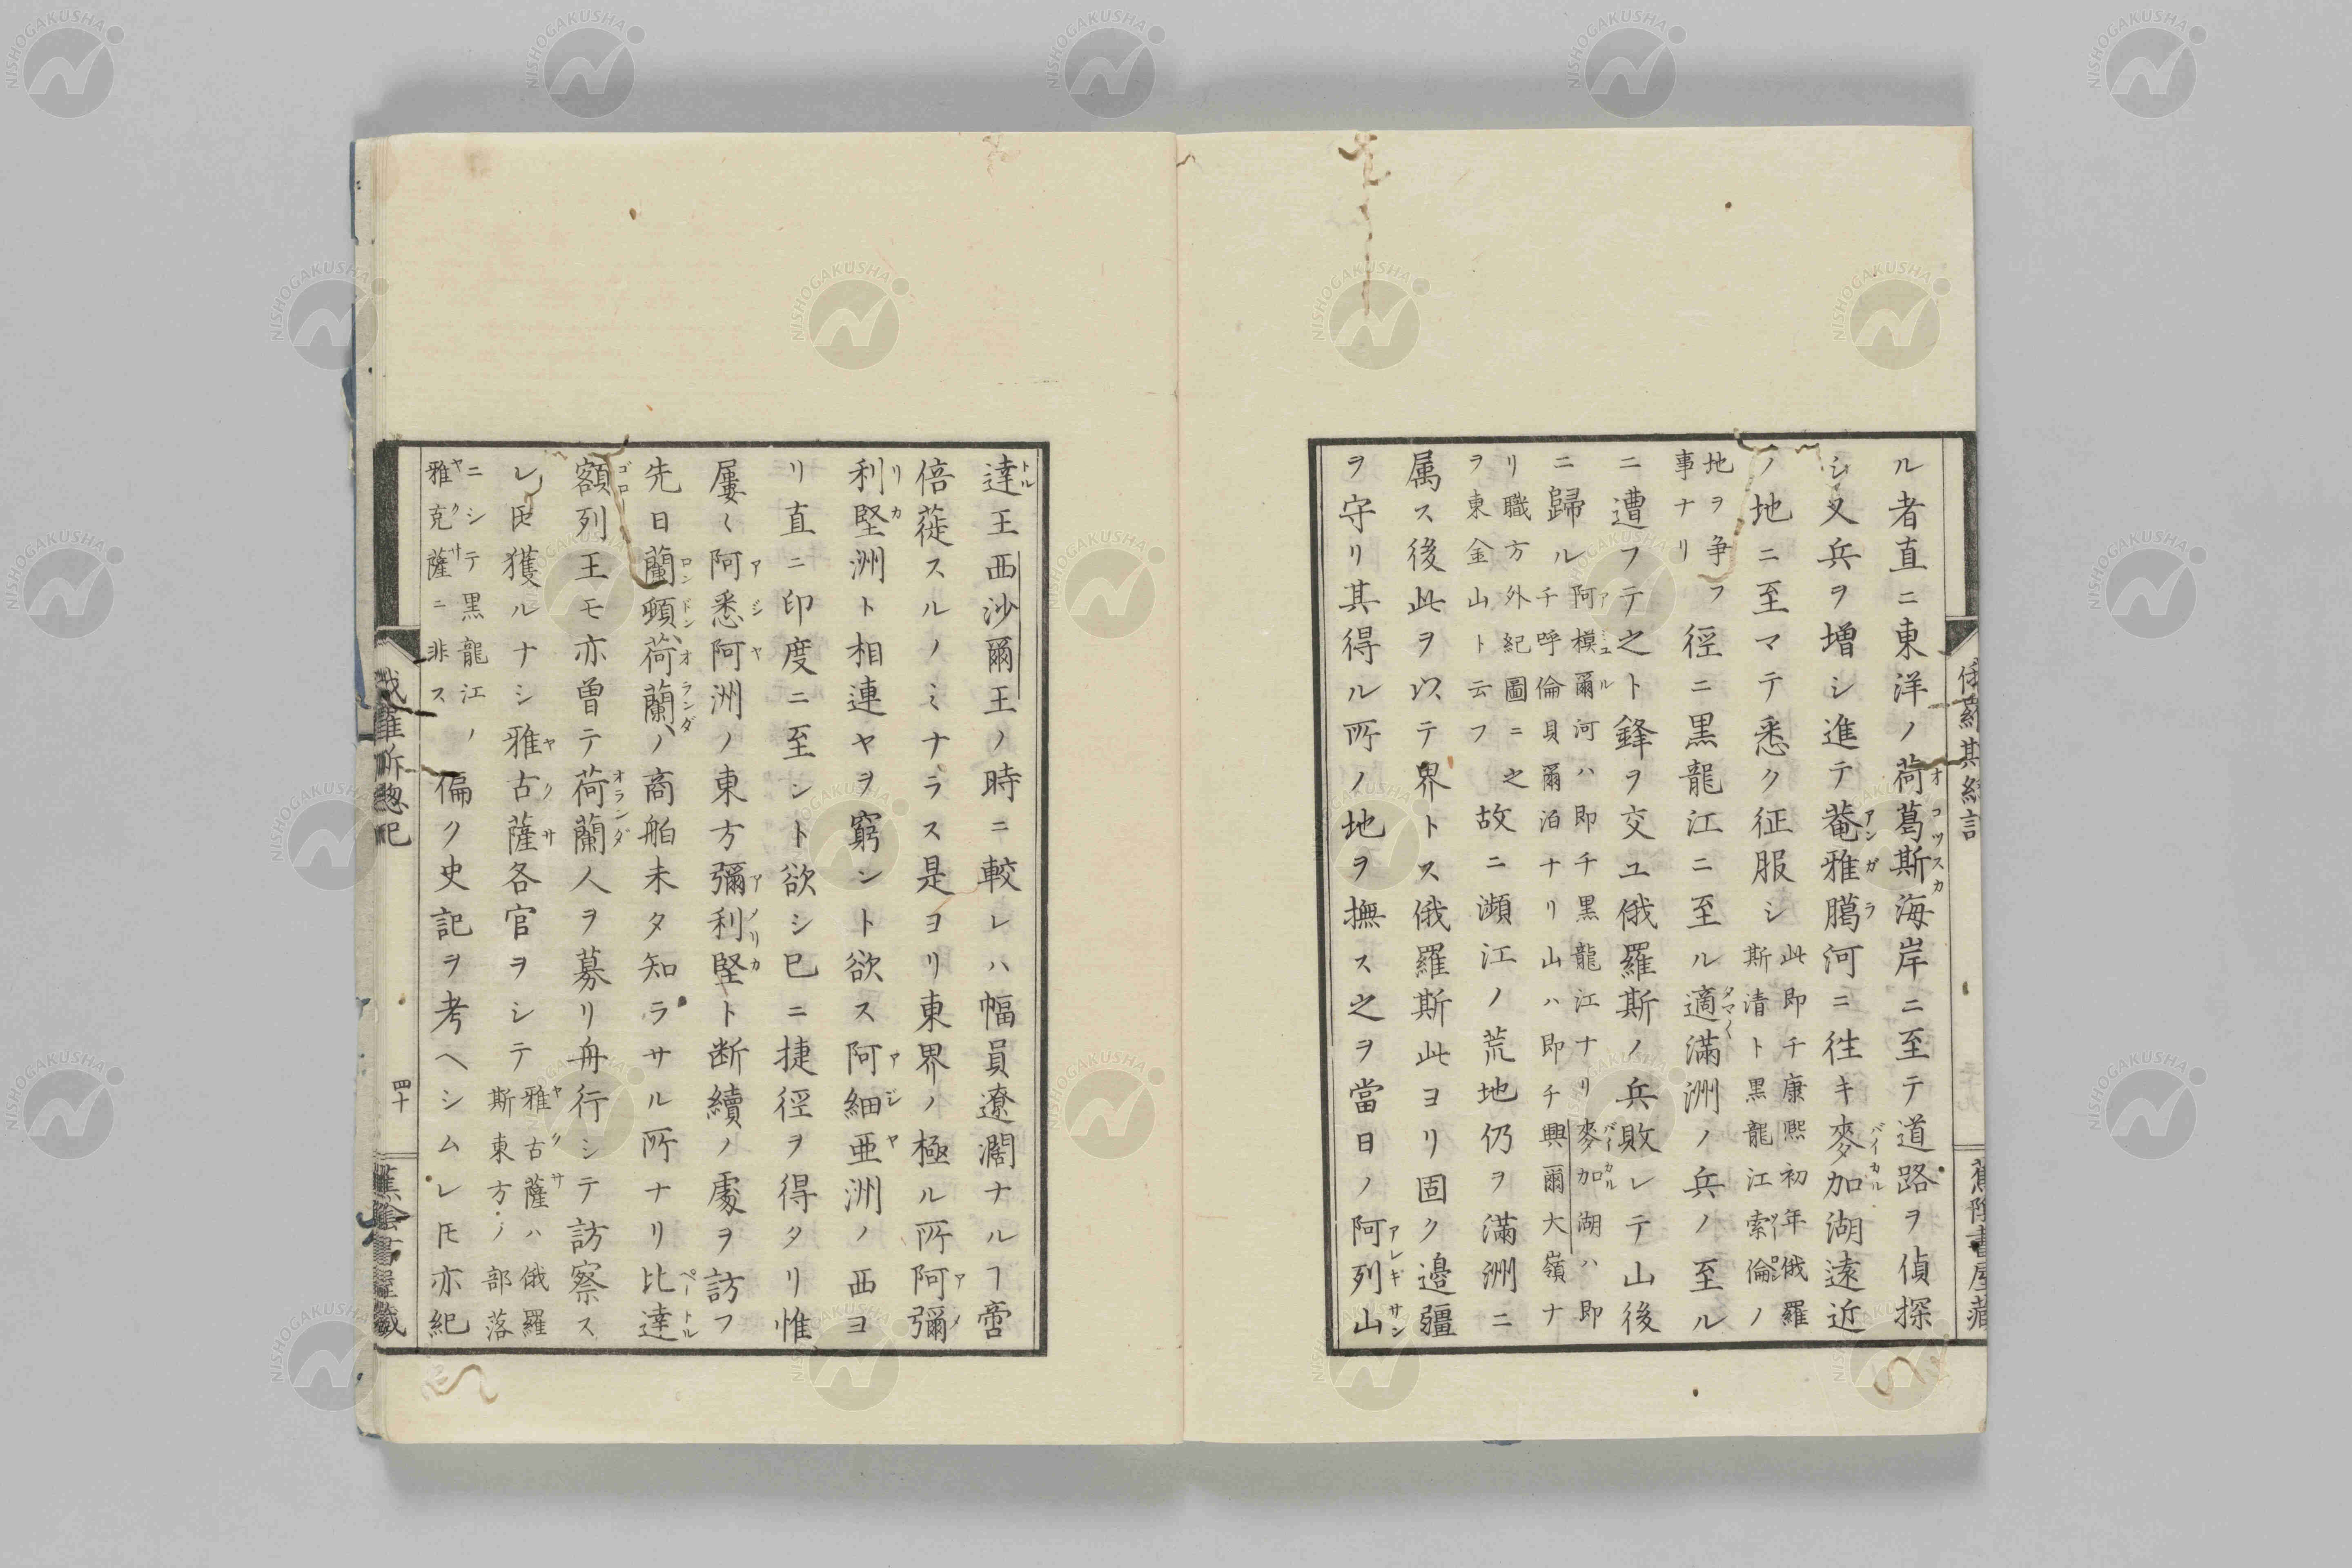 ル者直ニ東洋ノ荷葛斯海岸ニ至テ道路ヲ偵探
シ又兵ヲ増シ進テ菴雅臈河ニ往キ麥加湖遠近
ノ地ニ至マテ悉ク征服シ此即チ康熙初年俄羅斯清ト黒龍江索倫ノ
地ヲ争フ事ナリ徑ニ黒龍江ニ至ル適滿洲ノ兵ノ至ル
ニ遭フテ之ト鋒ヲ交ユ俄羅斯ノ兵敗レテ山後
ニ歸ル阿模爾河ハ即チ黒龍江ナリ麥加湖ハ即千呼倫貝爾泊ナリ山ハ即チ興爾大嶺ナ
リ職方外紀圖ニ之ヲ東金山ト云フ故ニ瀕江ノ荒地仍ヲ滿洲ニ
属ス後此ヲ以テ界トス俄羅斯此ヨリ固ク邉疆
ヲ守リ其得ル所ノ地ヲ撫ス之ヲ當日ノ阿列山
達王西沙爾王ノ時ニ較レハ幅員遼濶ナルヿ啻
倍蓰スルノミナラス是ヨリ東界ノ極ル所阿彌
利堅洲ト相連ヤヲ窮ント欲ス阿細亜洲ノ西ヨ
リ直ニ印度ニ至ント欲シ巳ニ捷徑ヲ得タリ惟
屢〻阿悉阿洲ノ東方彌利堅ト断續ノ處ヲ訪フ
先日蘭頓荷蘭ノ商舶未タ知ラサル所ナリ比達
額列王モ亦曽テ荷蘭人ヲ募リ舟行シテ訪察ス
レ𪜈獲ルナシ雅古薩各官ヲシテ雅古薩ハ俄羅斯東方ノ部落
ニシテ黒龍江ノ雅克薩ニ非ス偏ク史記ヲ考ヘシムレ𪜈亦紀
四十